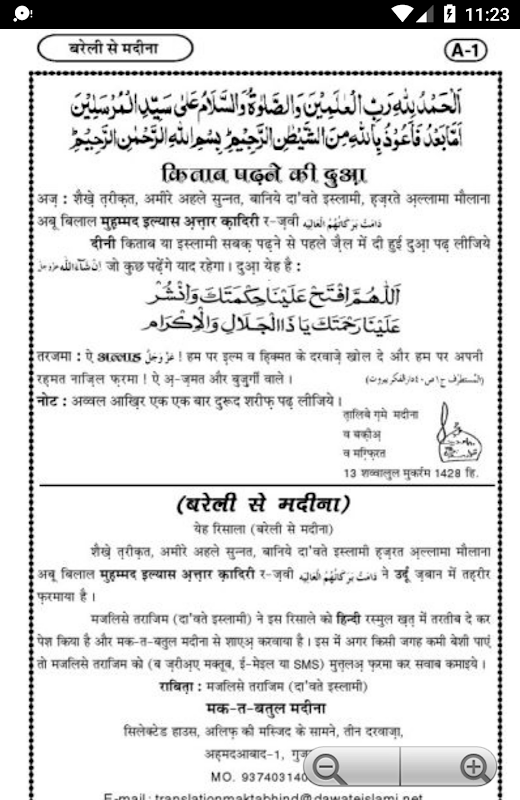 11:23
बरेली से मदीना
A-1
اَلْحَمْدُ لِلّٰهِ رَبِّ الْعٰلَمِيْنَ وَالصَّلٰوةُ وَالسَّلَامُ عَلٰى سَيِّدِ الْمُرْسَلِيْنَ
اَمَّا بَعْدُ فَاَعُوْذُ بِاللّٰهِ مِنَ الشَّيْطٰنِ الرَّجِيْمِ بِسْمِ اللّٰهِ الرَّحْمٰنِ الرَّحِيْمِ
किताब पढ़ने की दुआ़
अज़ : शैख़े त़रीक़त, अमीरे अहले सुन्नत, बानिये दा'वते इस्लामी, ह़ज़रते अ़ल्लामा मौलाना
अबू बिलाल मुह़म्मद इल्यास अ़त्त़ार क़ादिरी र-ज़वी دَامَتْ بَرَكَاتُهُمُ الْعَالِيَه
दीनी किताब या इस्लामी सबक़ पढ़ने से पहले ज़ैल में दी हुई दुआ़ पढ़ लीजिये
اِنْ شَآءَ اللّٰه عَزَّوَجَلَّ जो कुछ पढ़ेंगे याद रहेगा। दुआ़ येह है :
اَللّٰهُمَّ افْتَحْ عَلَيْنَا حِكْمَتَكَ وَانْشُرْ
عَلَيْنَا رَحْمَتَكَ يَا ذَا الْجَلَالِ وَالْاِكْرَام
तरजमा : ऐ अल्लाह عَزَّوَجَلَّ ! हम पर इल्म व ह़िक्मत के दरवाज़े खोल दे और हम पर अपनी
रह़मत नाज़िल फ़रमा ! ऐ अ़-ज़मत और बुज़ुर्गी वाले। (اَلْمُسْتَطْرَف ج١ ص٤٠ دارالفكر بيروت)
नोट : अव्वल आख़िर एक एक बार दुरूद शरीफ़ पढ़ लीजिये।
त़ालिबे ग़मे मदीना
व बक़ीअ़
व मग़्फ़िरत
13 शव्वालुल मुकर्रम 1428 हि.
(बरेली से मदीना)
येह रिसाला (बरेली से मदीना)
शैख़े त़रीक़त, अमीरे अहले सुन्नत, बानिये दा'वते इस्लामी ह़ज़रत अ़ल्लामा मौलाना
अबू बिलाल मुह़म्मद इल्यास अ़त्त़ार क़ादिरी र-ज़वी دَامَتْ بَرَكَاتُهُمُ الْعَالِيَه ने उर्दू ज़बान में तह़रीर
फ़रमाया है।
मजलिसे तराजिम (दा'वते इस्लामी) ने इस रिसाले को हिन्दी रस्मुल ख़त़ में तरतीब दे कर
पेश किया है और मक-त-बतुल मदीना से शाएअ़ करवाया है। इस में अगर किसी जगह कमी बेशी पाएं
तो मजलिसे तराजिम को (ब ज़रीअ़ए मक्तूब, ई-मेइल या SMS) मुत़्त़लअ़ फ़रमा कर सवाब कमाइये।
राबित़ा : मजलिसे तराजिम (दा'वते इस्लामी)
मक-त-बतुल मदीना
सिलेक्टेड हाउस, अलिफ़ की मस्जिद के सामने, तीन दरवाज़ा,
अह़मदआबाद-1,
MO. 93740314
E-mail : translationmaktabhind@dawateislami.net